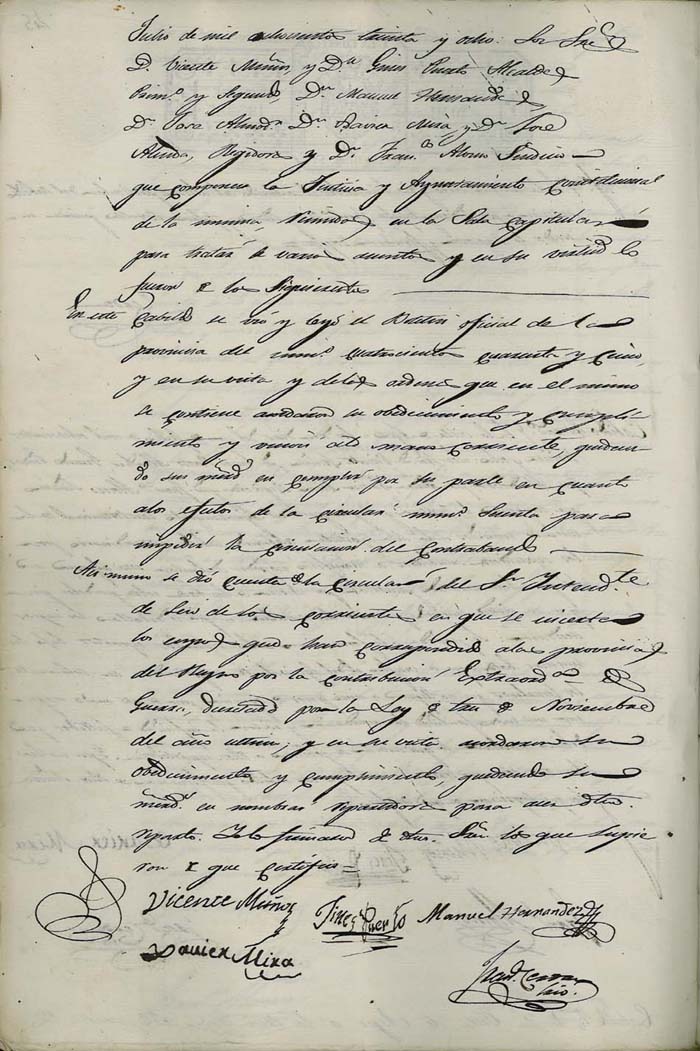 Julio de mil ochocientos treinta y ocho: Los Sres
D. Vicente Muñoz, y Dn Gines Puerto Alcaldes
Primo y Segundo, Dn Manuel Hernandez
Dn Jose Dn Xavier Mira, y Dn Jose
Regidores y Dn Franco Alonso Sindico
que componen la Justicia y Ayuntamiento Constitucional
de la misma, reunidos en la Sala Capitular
para tratar de varios asuntos y en su virtud lo
fueron de los siguientes
En este Cabildo se vió y leyó el Boletin oficial de la
provincia del numo cuatrocientos cuarenta y cinco,
y en su vista y de las ordenes que en el mismo
se contiene acordaron su obedecimiento y cumpli-
miento y union al mano corriente, quedan-
do sus mrds en cumplir por su parte en cuanto
a los efectos de la circular numo para
impedir la circulacion del contrabando
Asi mismo se dió cuenta de la circular del Sr Intendte
de seis de los corrientes en que se inserta
los cupos que han correspondido a las provincias
del Reyno por la contribucion Extraorda de
Guerra, decretada por la Ley de tres de Noviembre
del año ultimo, y en su vista acordaron su
obedecimiento y cumplimiento, quedando sus
mrds en nombrar repartidores para hacer dho
reparto. Y lo firmaron de dhos Sres los que supie
ron de que certifico=
Vicente Muñoz
Gines Puerto
Manuel Hernandez
Xavier Mira